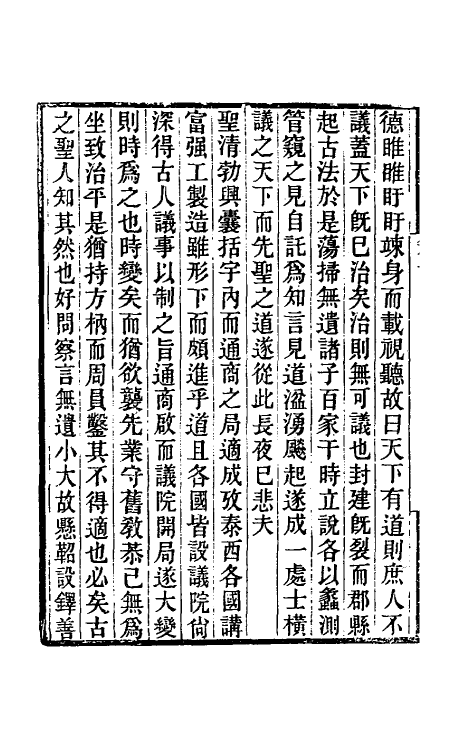 德睢睢盱盱竦身而載視聽故曰天下有道則庶人不
議蓋天下旣已治矣治則無可議也封建旣裂而郡縣
起古法於是蕩掃無遺諸子百家干時立說各以蠡測
管窺之見自託爲知言見道湓湧颷起遂成一處士橫
議之天下而先聖之道遂從此長夜已悲夫
聖清勃興囊括宇內而通商之局適成攷泰西各國講
富强工製造雖形下而頗進乎道且各國皆設議院尙
深得古人議事以制之旨通商啟而議院開局遂大變
則時爲之也時變矣而猶欲襲先業守舊敎恭己無爲
坐致治平是猶持方枘而周員鑿其不得適也必矣古
之聖人知其然也好問察言無遺小大故懸鞀設鐸善